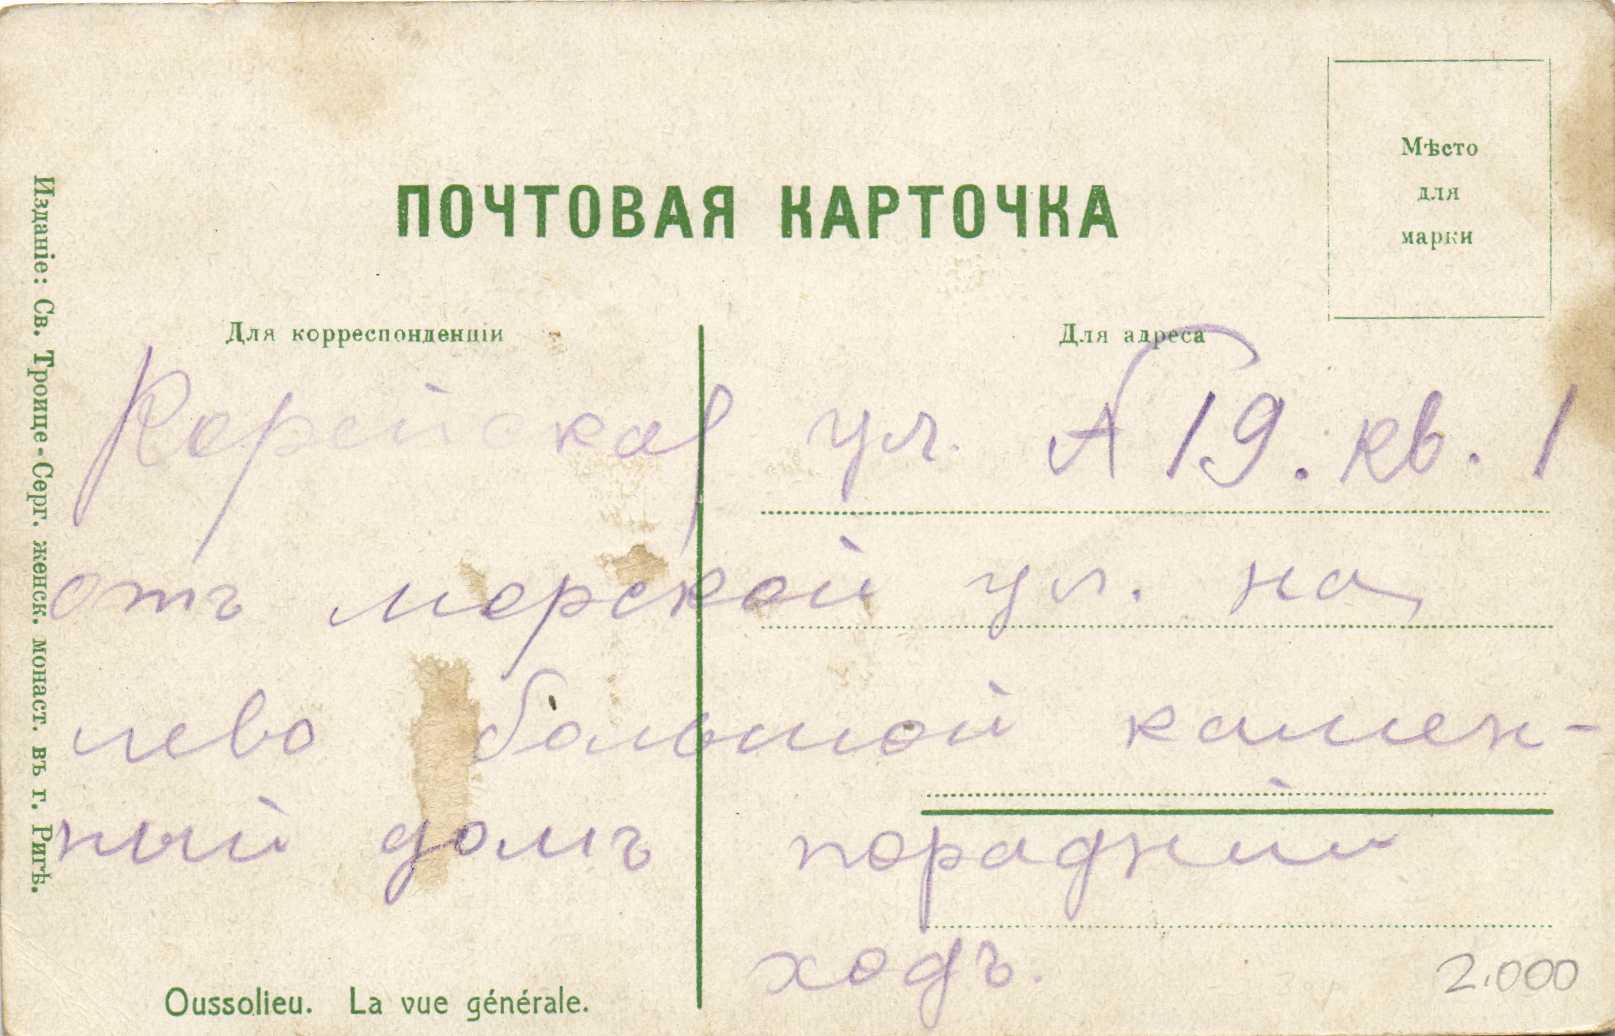 ПОЧТОВАЯ КАРТОЧКА
Мѣсто
для
марки
Для корреспонденціи
Для адреса
Корейская ул. № 19. кв. 1
отъ морской ул. на
лево большой камен-
ный домъ порадний
ходъ.
Изданіе: Св. Троице-Серг. женск. монаст. въ г. Ригѣ.
Oussolieu. La vue générale.
2.000